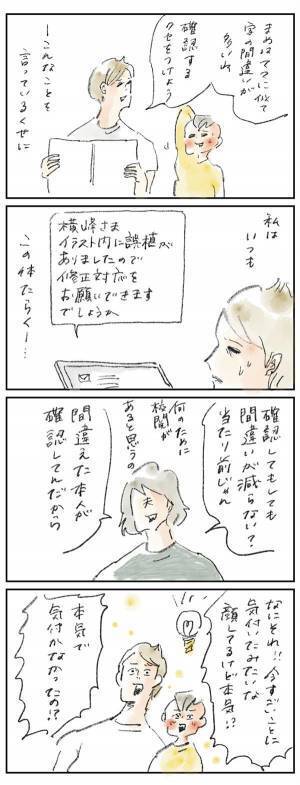 まめはてつに似て
字の間違いが
多いね
確認する
クセをつけよう
ーこんなことを
言っているくせに
私は
いつも
横峰さま
イラスト内に誤植が
ありましたので
修正対応を
お願いできます
でしょうか
この体たらく…
確認しても
間違いが減らない？
当たり前じゃん
何のために
校閲が
あると思うの
夫
間違えた本人が
確認してんだから
なにそれ!!今すごいことに
気付いたみたいな
顔してるけど本気!?
本気で
気付かなかったの!?